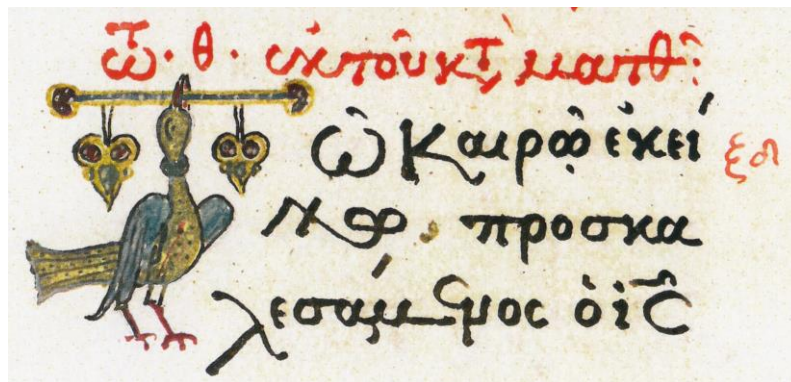 τῶ · θ · ἐκ τοῦ κτ, ματθ:
Τῶ καιρῶ ἐκεί
νω, προσκα
λεσάμενος ὁ ἰς